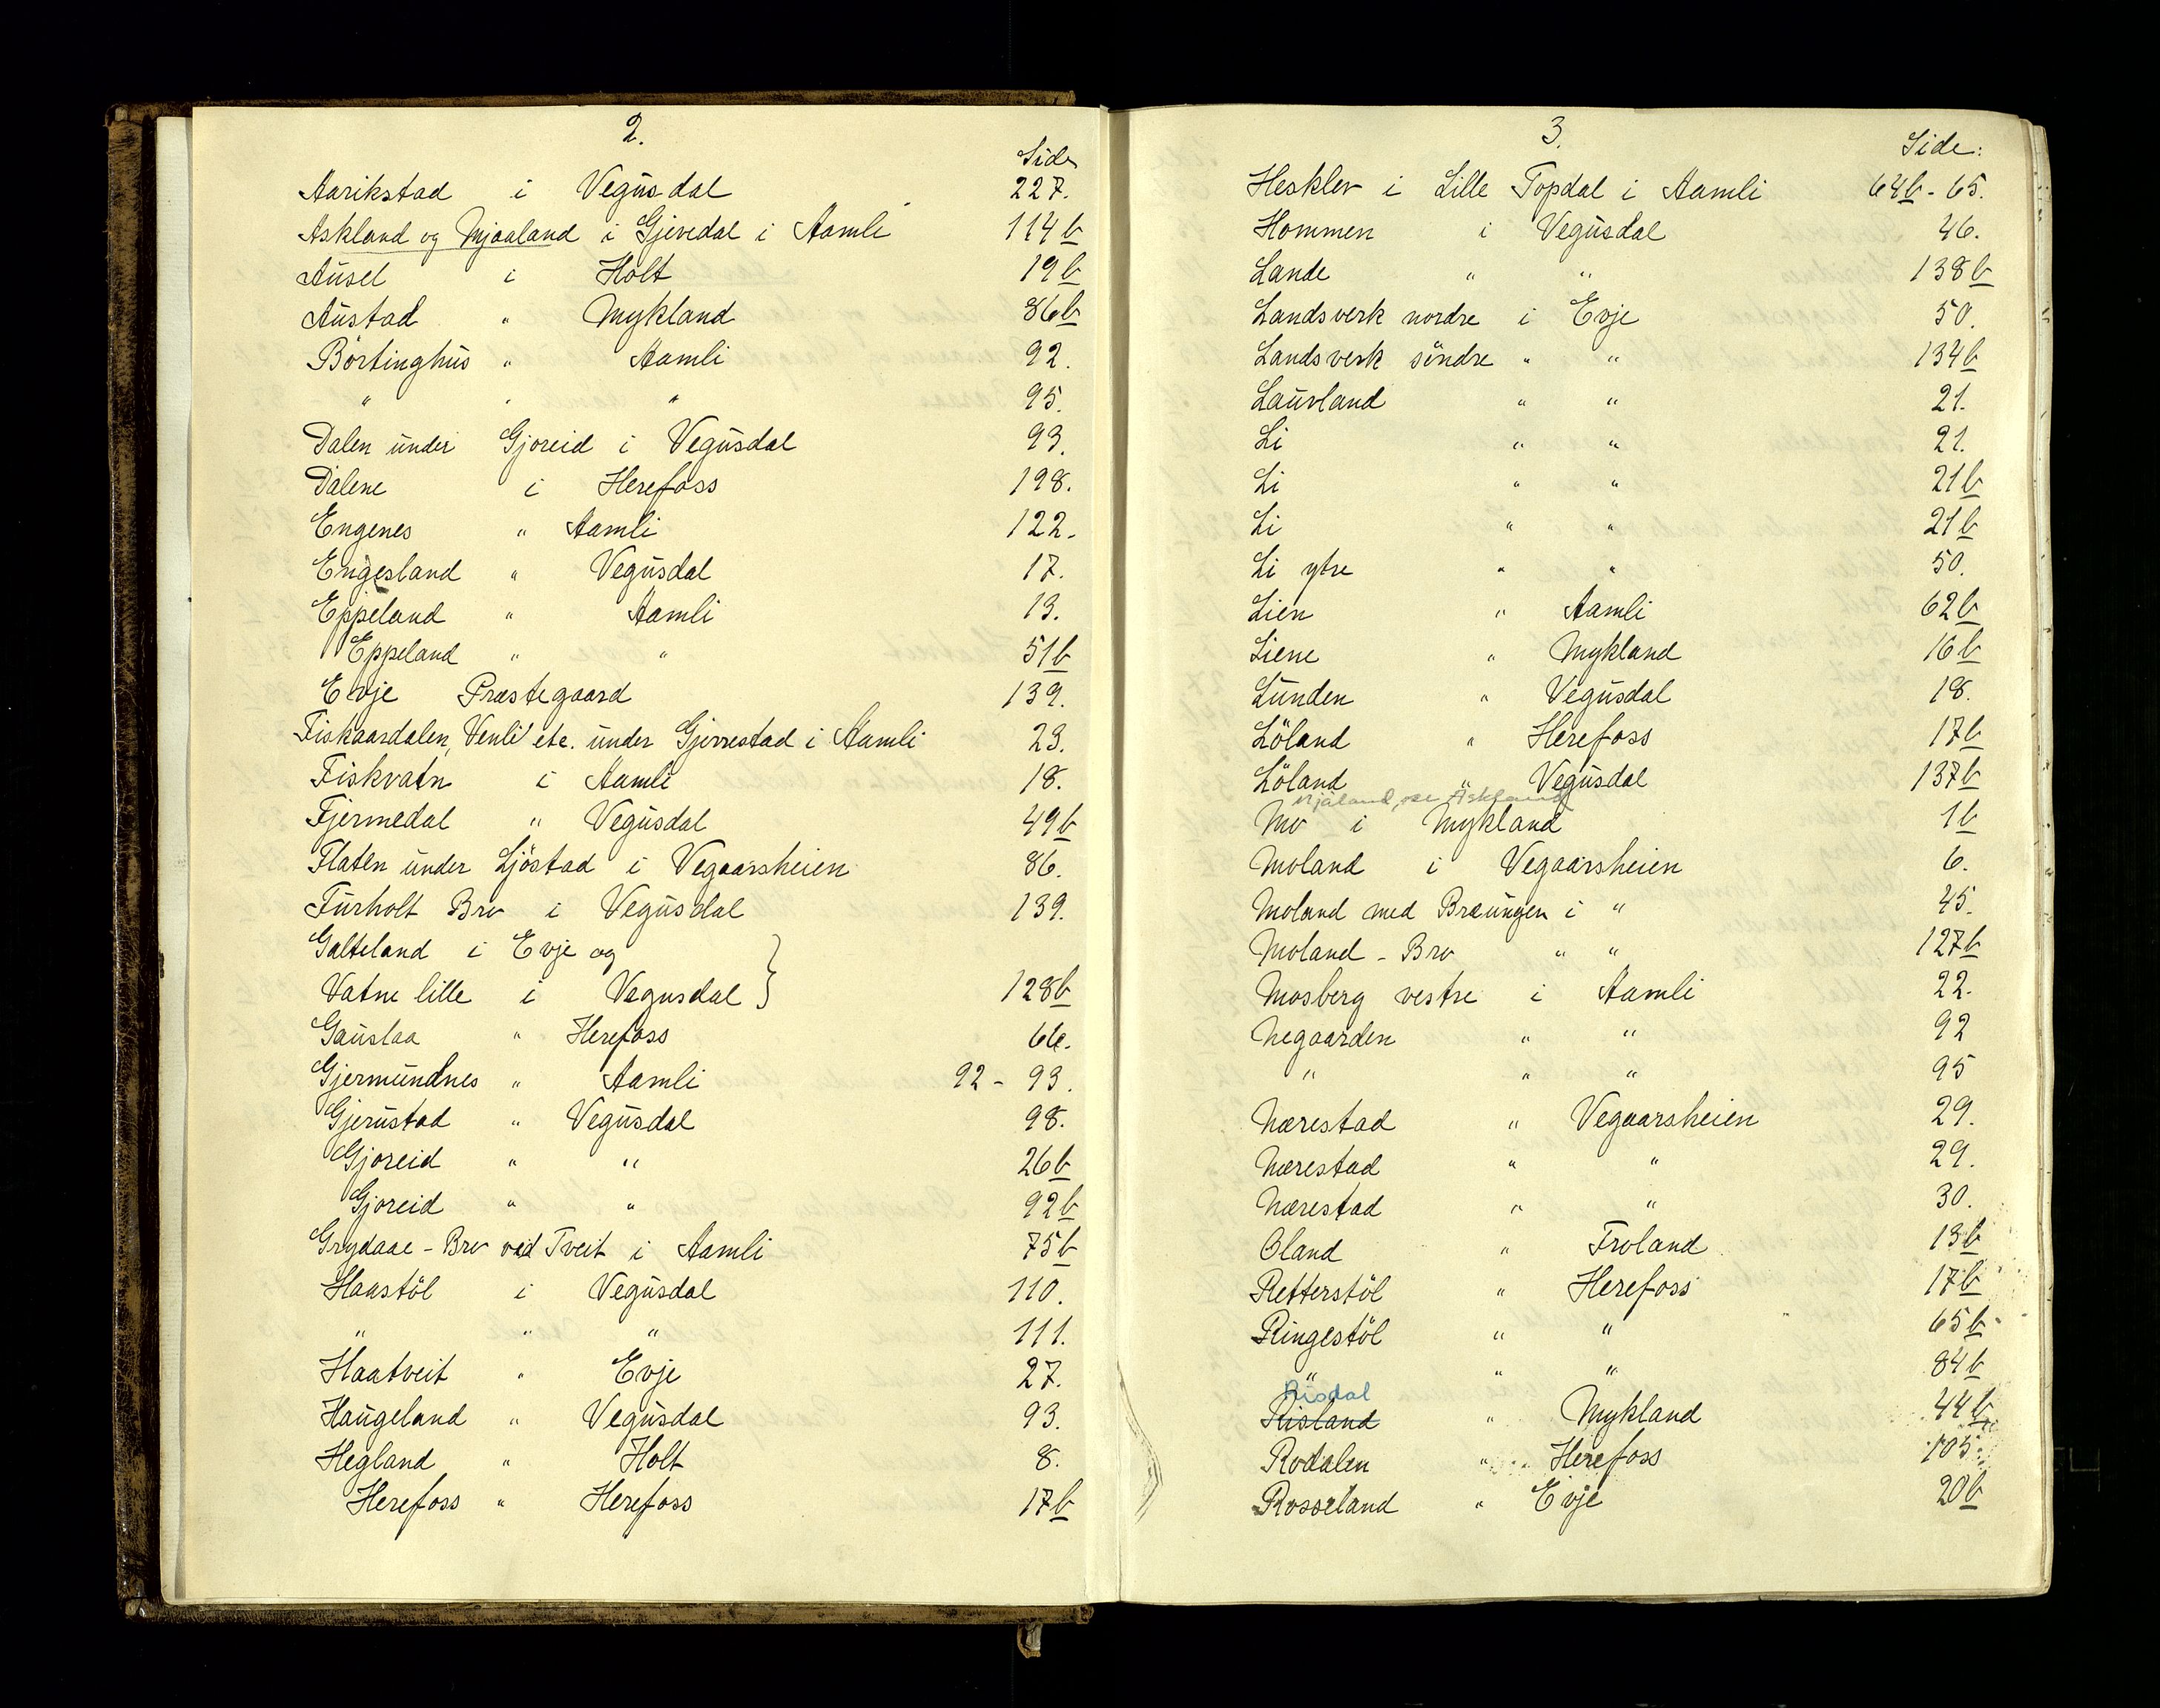 2.
Side
Aarikstad i Vegusdal 227.
Askland og Mjaaland i Gjevedal i Aamli 114b
Ausel i Holt 19b
Austad " Mykland 86b
Börtinghus " Aamli 92.
" " " 95.
Dalen under Gjoreid i Vegusdal 93.
Dalene i Herefoss 198.
Engenes " Aamli 122.
Engesland " Vegusdal 17.
Eppeland " Aamli 13.
Eppeland " " 51b
Evje Præstegaard 139.
Fiskaardalen, Venli etc. under Gjerrestad i Aamli 23.
Fiskvatn i Aamli 18.
Fjermedal " Vegusdal 49b
Flaten under Ljöstad i Vegaarsheien 86.
Furholt Bro i Vegusdal 139.
Galteland i Evje og
Vatne lille i Vegusdal } 128b
Gauslaa " Herefoss 66.
Gjermundnes " Aamli 92 - 93.
Gjerustad " Vegusdal 98.
Gjoreid " " 26b
Gjoreid " " 92b
Grydaae - Bro ved Tveit i Aamli 75b
Haastöl i Vegusdal 110.
" " " 111.
Haatveit " Evje 27.
Haugeland " Vegusdal 93.
Hegland " Holt 8.
Herefoss " Herefoss 17b
3.
Side:
Hesklev i Lille Topdal i Aamli 64b - 65.
Hommen i Vegusdal 46.
Lande " " 138b
Landsverk nordre i Evje 50.
Landsverk söndre " " 134b
Laurland " " 21.
Li " " 21.
Li " " 21b
Li " " 21b
Li ytre " " 50.
Lien " Aamli 62b
Liene " Mykland 16b
Lunden " Vegusdal 18.
Löland " Herefoss 17b
Löland " Vegusdal 137b
Mjåland, se Askland
Mo i Mykland 1b
Moland i Vegaarsheien 6.
Moland med Braungen i " 45.
Moland - Bro " " 127b
Mosberg vestre i Aamli 22.
Negaarden " " 92
" " " 95
Nærestad " Vegaarsheien 29.
Nærestad " " 29.
Nærestad " " 30.
Oland " Froland 13b
Retterstöl " Herefoss 17b
Ringestöl " " 65b
" " " 84b
Risdal
Risland " Mykland 44b
Rodalen " Herefoss 105.
Rosseland " Evje 20b